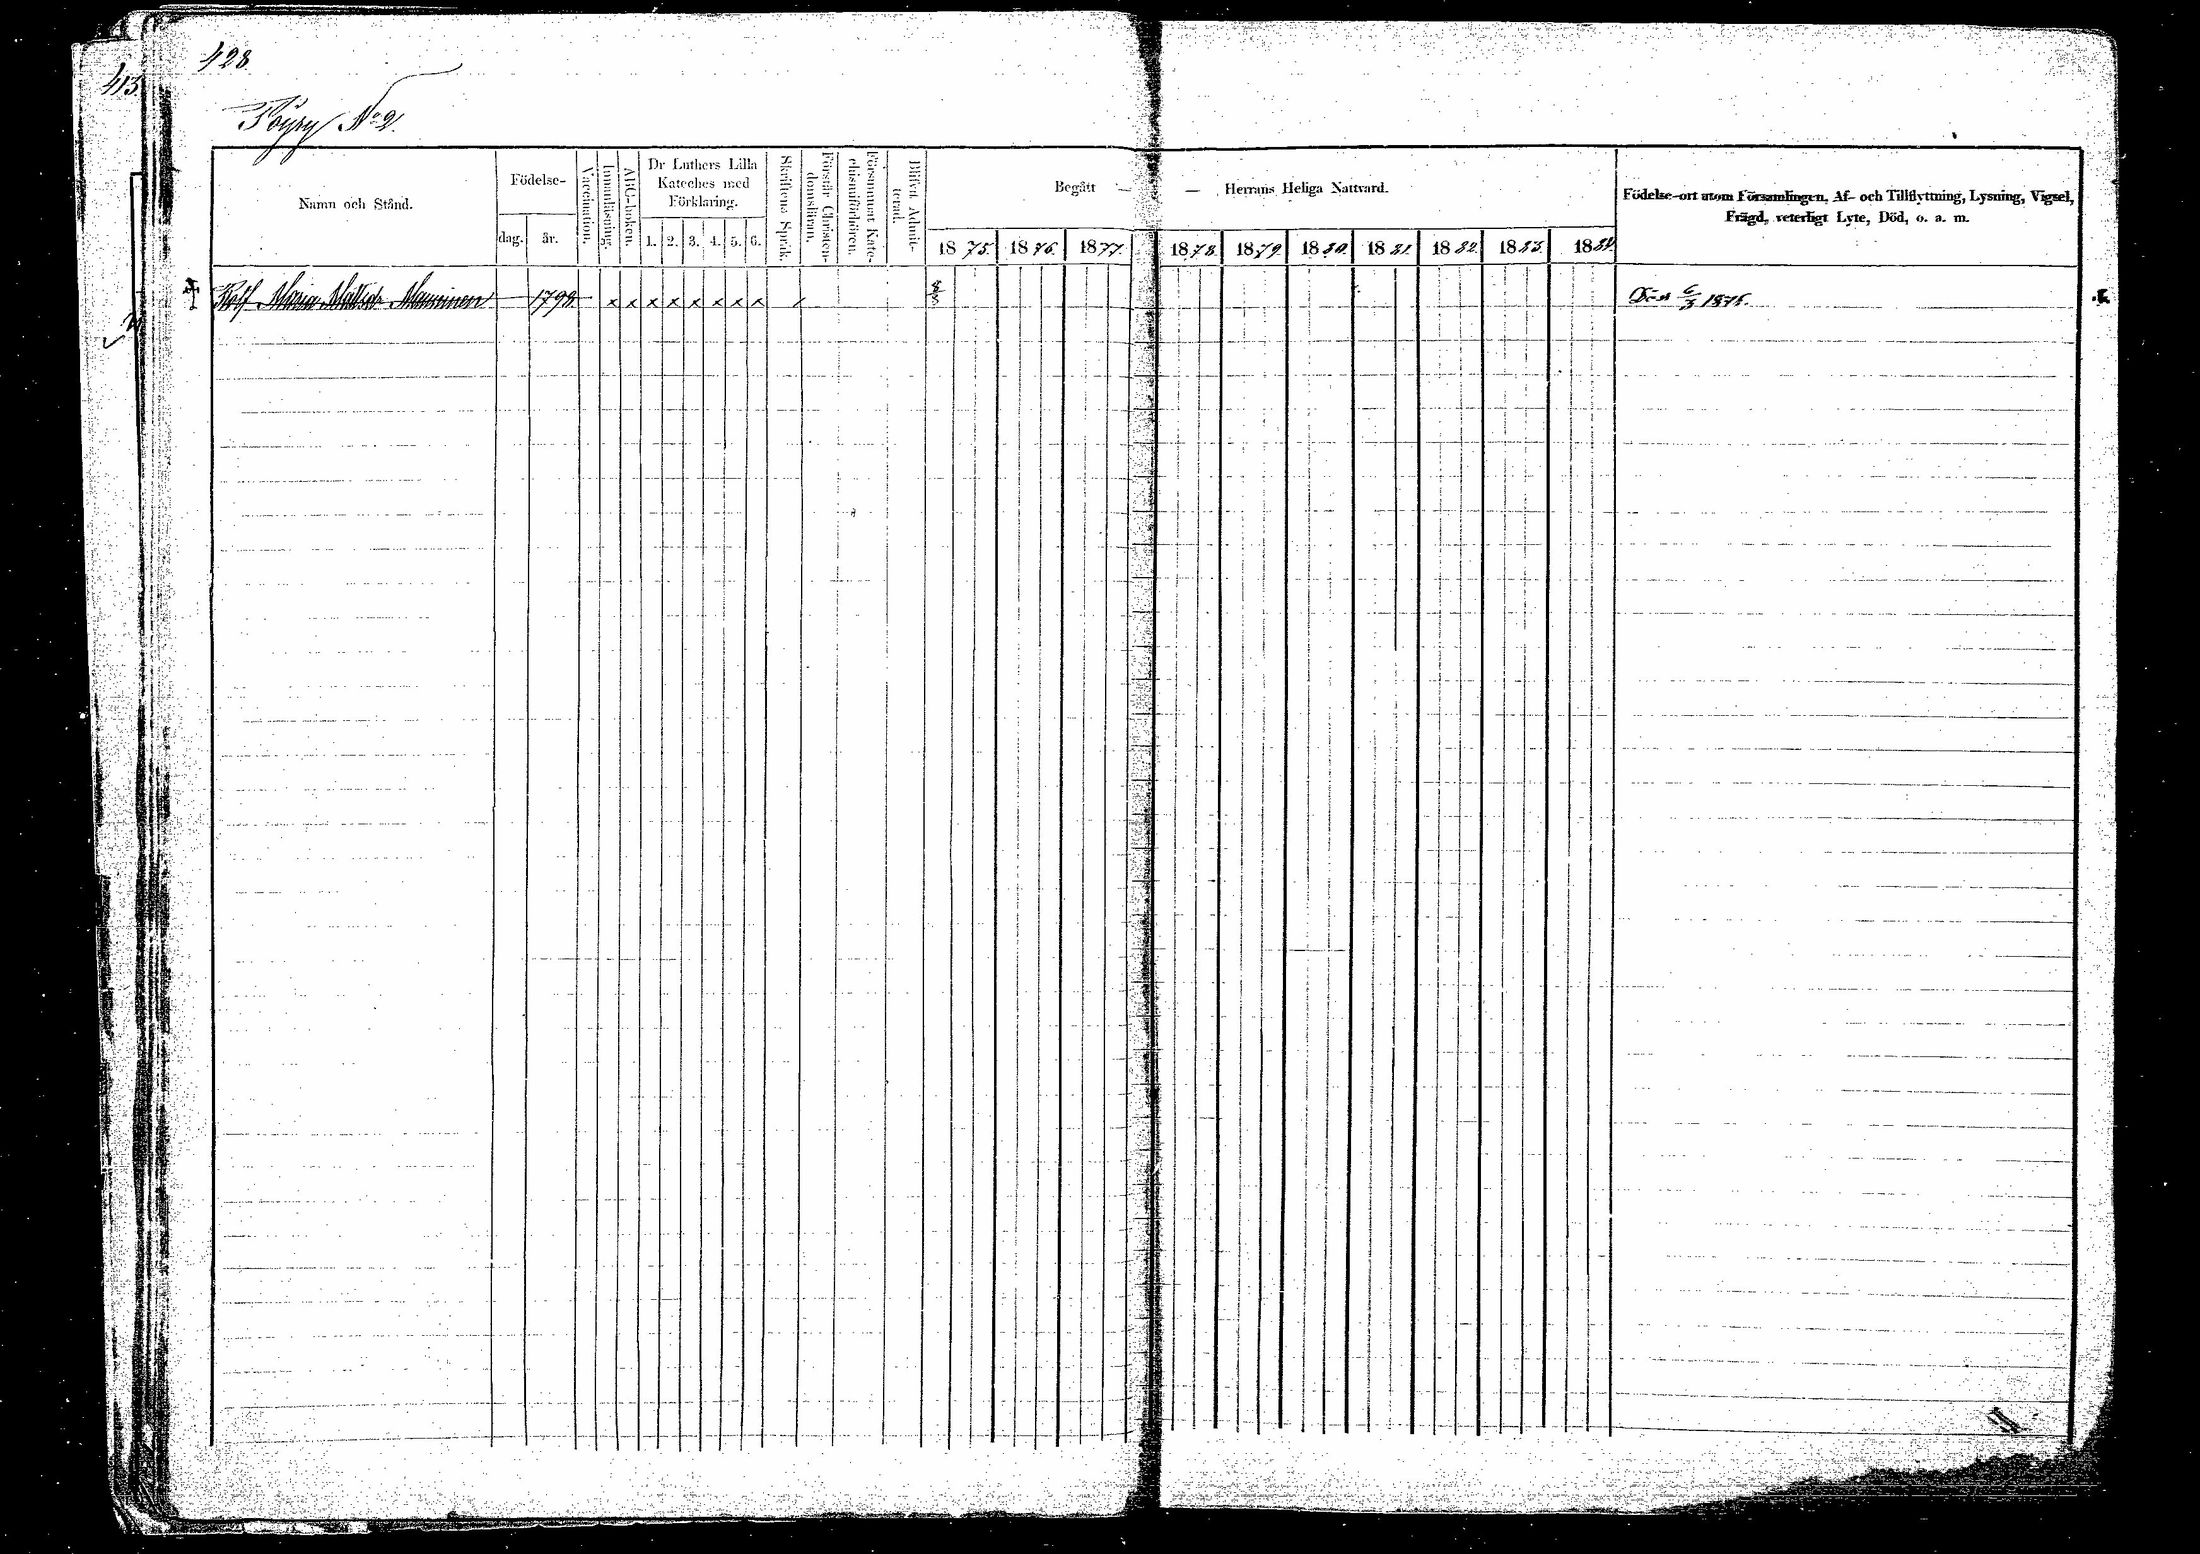 428.
413.
Föyry No 2.
Namn och Stånd.
Födelse-
dag.
år.
Vaccination.
Innanläsning.
ABC-boken.
Dr Luthers Lilla
Kateches med
Förklaring.
1. 2. 3. 4. 5. 6.
Skriftens Språk.
Förstår Christen-
domsläran.
Försummat Kate-
chismiförhören.
Blifvit Admit-
terad.
Begått — — Herrans Heliga Nattvard.
1875. 1876. 1877. 1878. 1879. 1880. 1881. 1882. 1883. 1884.
Födelse-ort utom Församlingen, Af- och Tillflyttning, Lysning, Vigsel,
Frägd, veterligt Lyte, Död, o. a. m.
Maria Mattsdr Manninen 1798. x x x x x x x x / Död 6/3 1875.